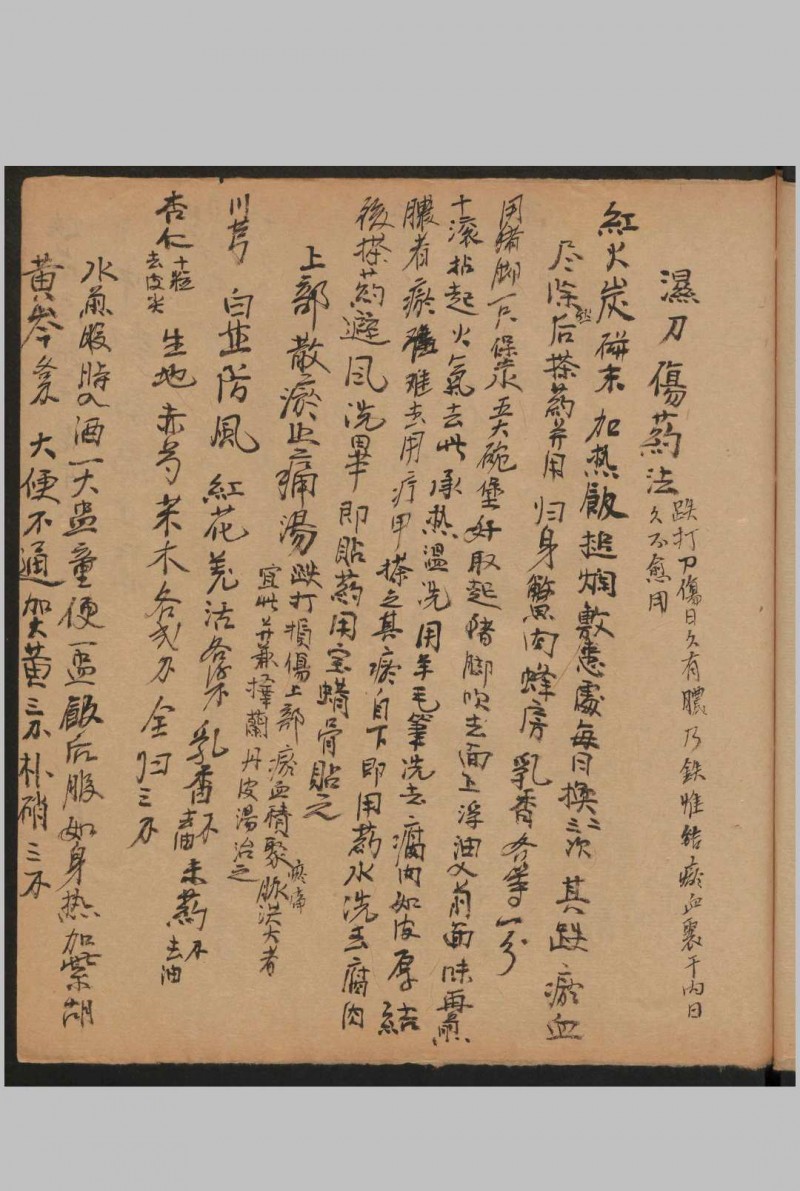 濕刀傷药法
跌打刀傷日久有膿乃鉄惟結瘀血裏于內日
久不愈用
紅火炭硏末 加热飯搥烟敷患處每日換二三次 其跌瘀血
尽除后搽药并用 归身 蟹肉 蜂房 乳香 各等一分
用猪脚一只 煲水五大碗 堡好取起猪脚吹去面上浮油又前面味再煎
十滚拈起火氣去些 承热温洗 用羊毛筆洗去 腐肉如皮厚 結
膿者瘀難去用疗甲搽之其瘀自下即用药水洗去腐肉
後搽药避風洗畢 即貼药用宝蜡骨貼之
上部散瘀止痛湯
跌打損傷上部瘀血積聚疼痛脉洪大者
宜此并兼擇蘭丹皮湯治之
川芎 白芷 防風 紅花 羌活各 乳香去油 末药去油
杏仁十粒去皮尖 生地 赤芍 茉木各弍刀 全归三刀
水煎服時入酒一大盅童便一盅飯后服如身热加紫胡
黄岑 大便不通加大黄三刀朴硝三刀